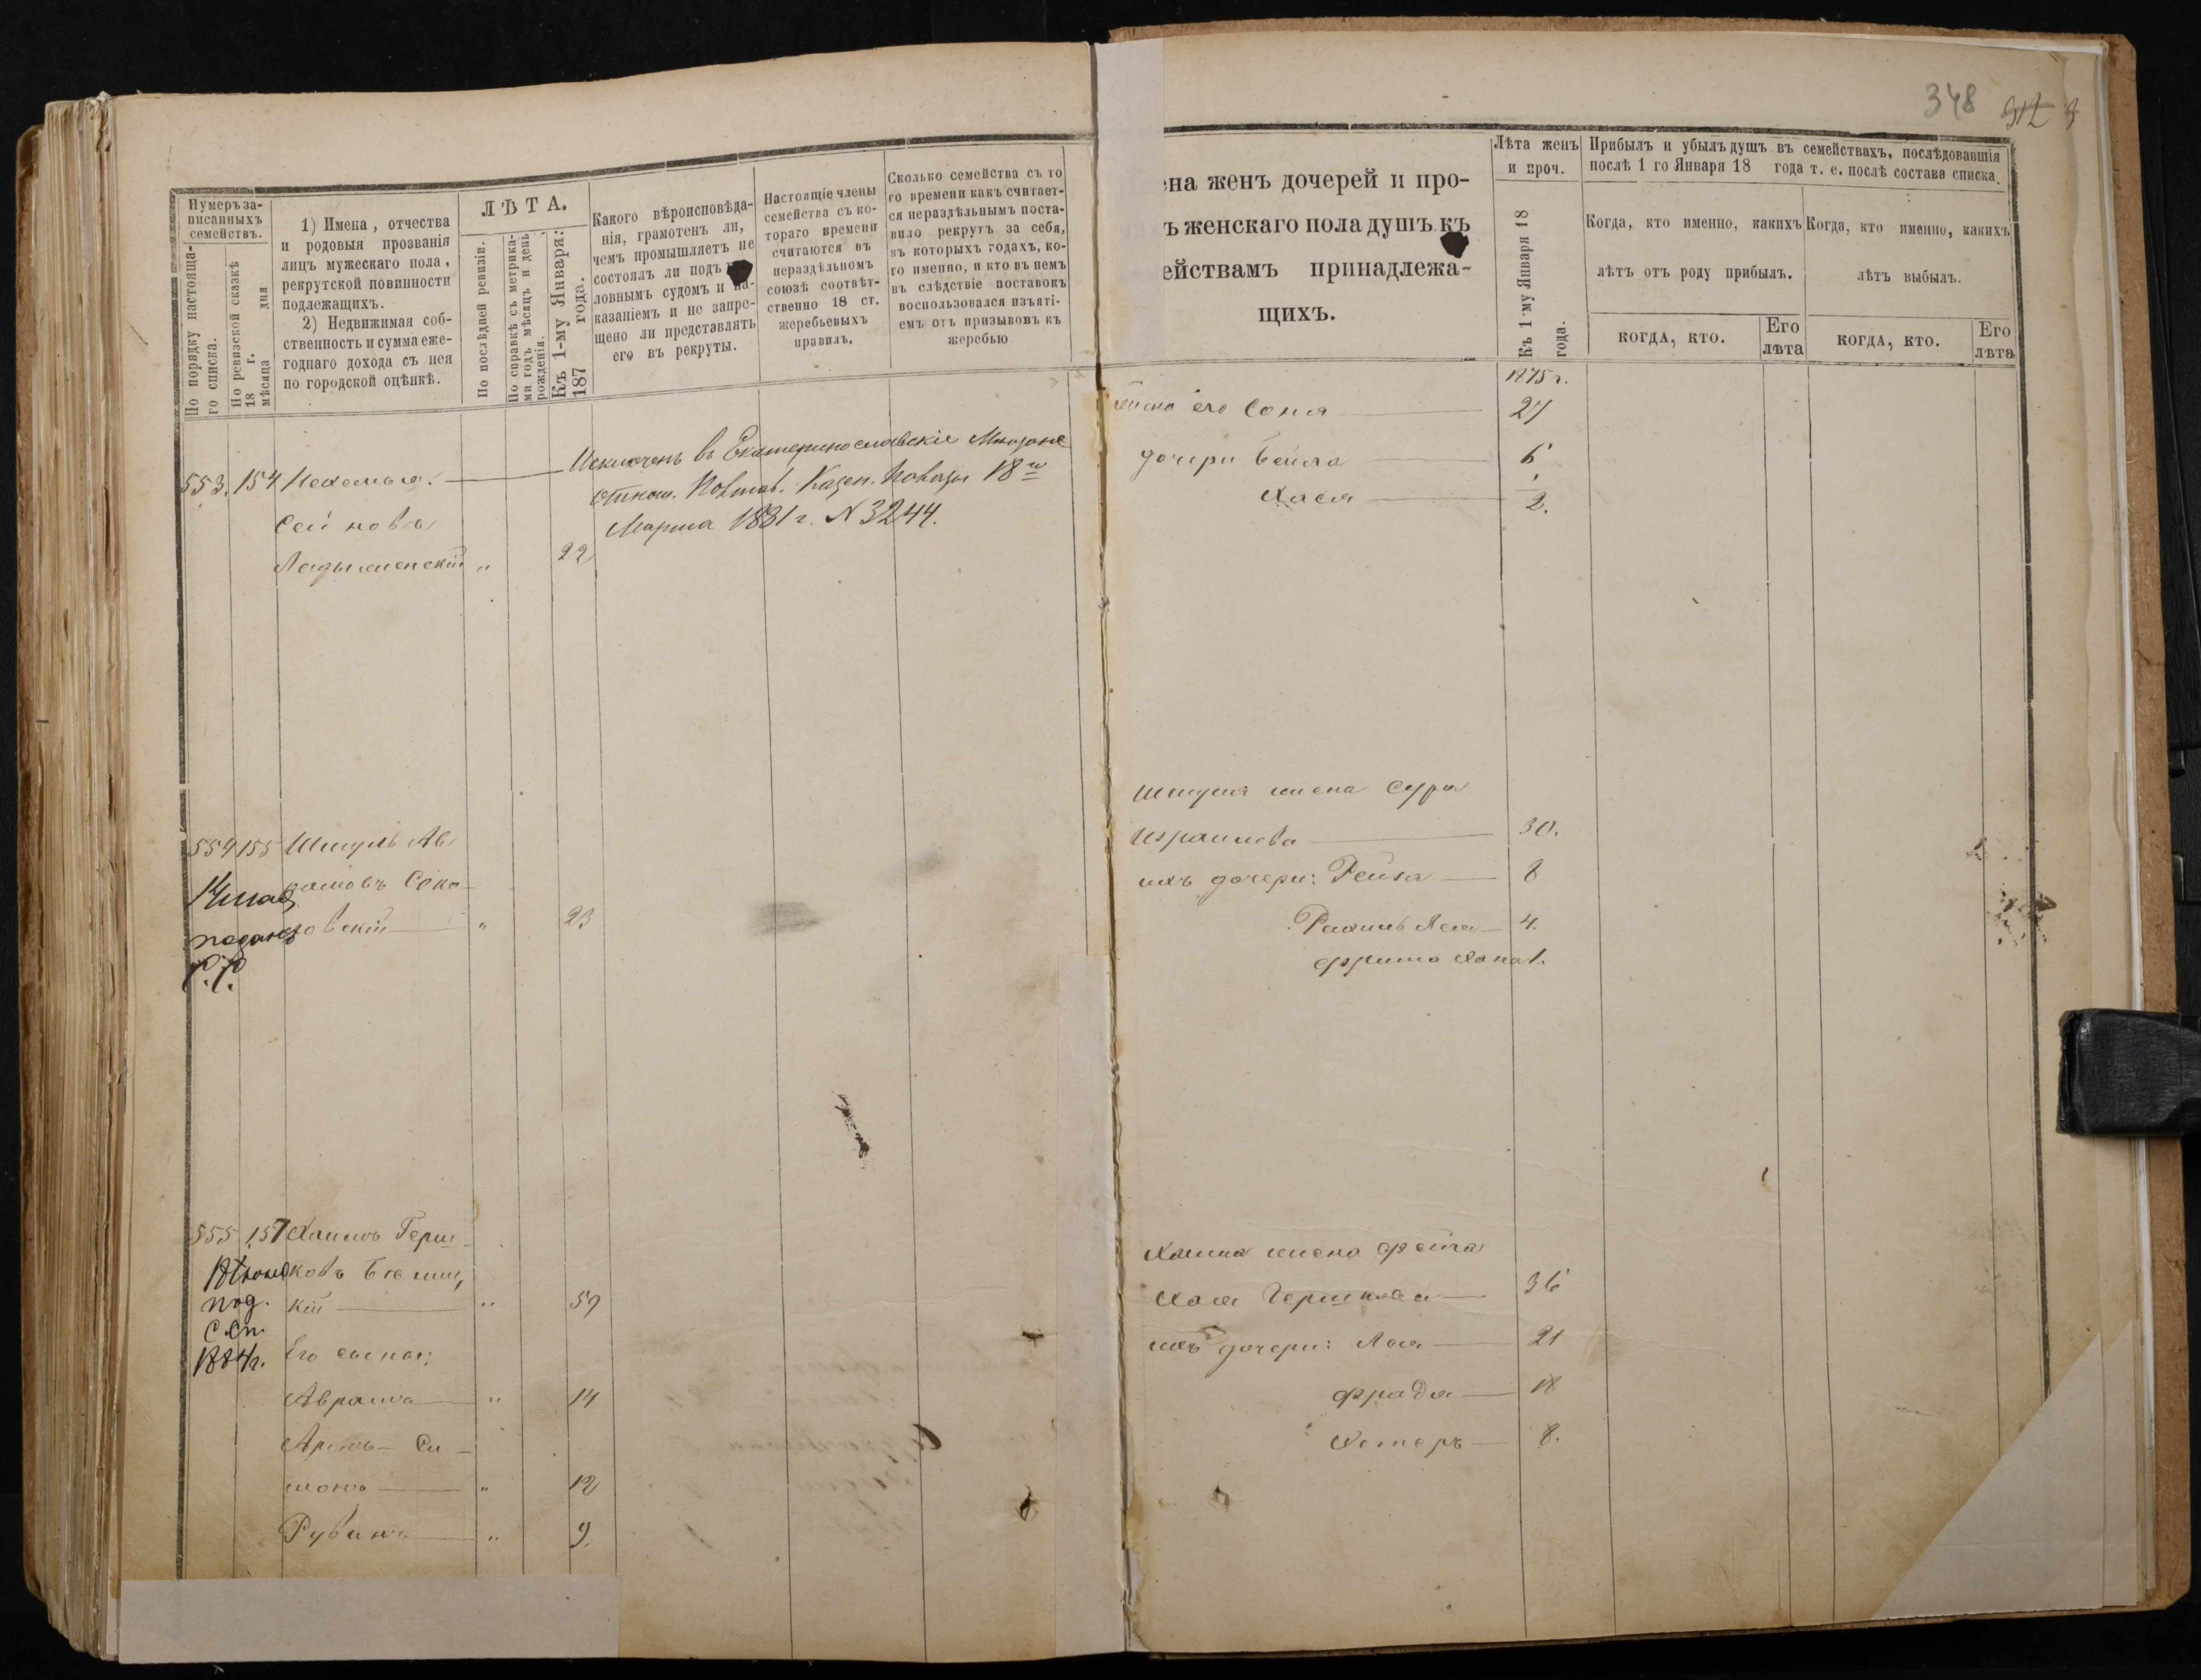 348
Нумеръ за-
писанныхъ
семействъ.
По порядку настояща-
го списка.
По ревизской сказкѣ
18 г.
мѣсяца дня
1) Имена, отчества
и родовыя прозванія
лицъ мужескаго пола,
рекрутской повинности
подлежащихъ.
2) Недвижимая соб-
ственность и сумма еже-
годнаго дохода съ нея
по городской оцѣнкѣ.
ЛѢТА.
По послѣдней ревизіи.
По справкѣ съ метрика-
ми годъ мѣсяцъ и день
рожденія.
Къ 1-му Января:
187 года.
Какого вѣроисповѣда-
нія, грамотенъ ли,
чемъ промышляетъ не
состоялъ ли подъ
ловнымъ судомъ и на-
казаніемъ и не запре-
щено ли представлять
его въ рекруты.
Настоящіе члены
семейства съ ко-
тораго времени
считаются въ
нераздѣльномъ
союзѣ соотвѣт-
ственно 18 ст.
жеребьевыхъ
правилъ.
Сколько семейства съ то
го времени какъ считает-
ся нераздѣльнымъ поста-
вило рекрутъ за себя,
въ которыхъ годахъ, ко-
го именно, и кто въ немъ
въ слѣдствіе поставокъ
воспользовался изъяті-
емъ отъ призывовъ къ
жеребью
553. 154 Нехемья.
Сейнова
Ладыженскій " 22
Исключенъ въ Екатеринославскіе Мѣщане
отнош. Полтав. Казен. Палаты 18го
Марта 1881 г. N 3244.
554 155 Шмуль Ав
рамовъ Соко-
ловскій " 23
555 157 Хаимъ Герш-
ковъ
кій " 59
под.
с.сп.
1884г.
Его сыновья:
Аврамъ " 14
Аронъ-Си-
монъ " 12
Рувинъ " 9.
ена женъ дочерей и про-
ъ женскаго пола душъ къ
ействамъ принадлежа-
щихъ.
Лѣта женъ
и проч.
Къ 1 му Января 18
года.
Прибылъ и убылъ душъ въ семействахъ, послѣдовавшія
послѣ 1 го Января 18 года т. е. послѣ состава списка.
Когда, кто именно, какихъ
лѣтъ отъ роду прибылъ.
Когда, кто именно, какихъ
лѣтъ выбылъ.
когда, кто.
Его
лѣта
когда, кто.
Его
лѣта
1875 г.
жена его Соня 27
дочери Бейла 6
Хася 2.
Шмуля жена Сура
Израилева 30.
ихъ дочери: Рейза 8
Рахиль Лея 4.
Фрима Хана 1.
Хаима жена Фейга
Хая Гершкова 36
ихъ дочери: Лея 21
Фрада 18
Эстеръ 8.